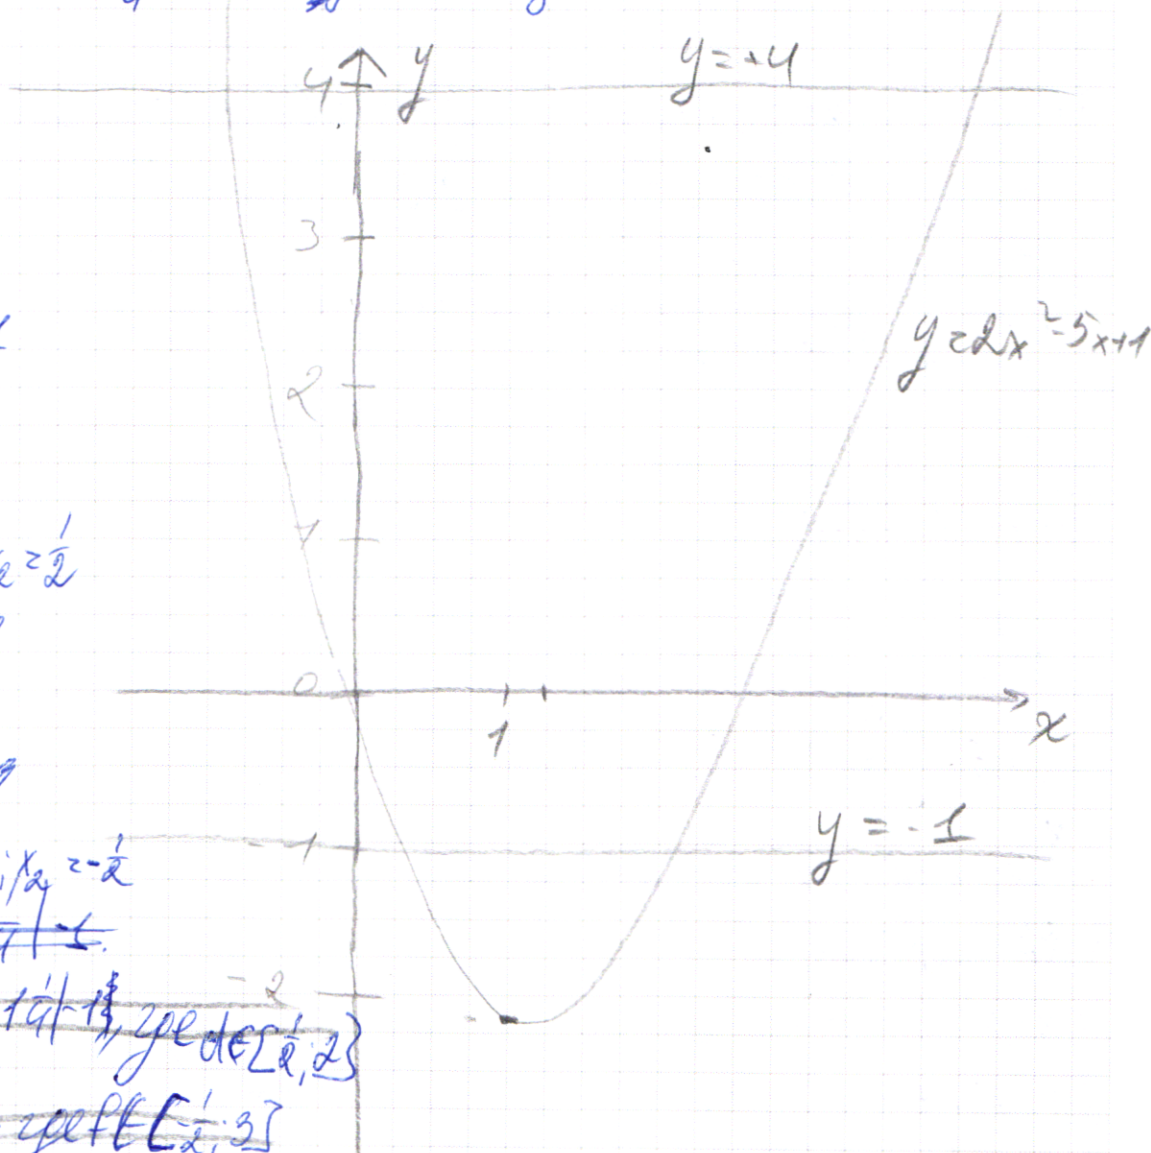 y
y=+4
4
3
y=2x²-5x+1
2
1
=1/2
0
1
x
y=-1
-1
; x₂=-1/2
-2
где d∈[1/2;2]
где f∈[-1/2;3]